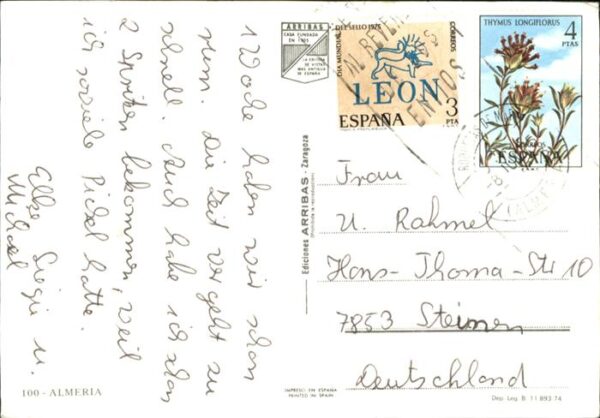 1 Woche haben wir schon
rum. Die Zeit vergeht zu
schnell. Auch habe ich schon
2 Spritzen bekommen, weil
ich soviele Pickel hatte.
Elke Siggie u.
Michael
100 - ALMERIA
ARRIBAS
CASA FUNDADA
Ediciones ARRIBAS - Zaragoza
(Prohibida la reproducción)
IMPRESO EN ESPAÑA
PRINTED IN SPAIN
DIA MUNDIAL DEL SELLO 1975
CORREOS
LEON
ESPAÑA
3
PTA
THYMUS LONGIFLORUS
4
PTAS
CORREOS
ESPAÑA
Frau
U. Rahmel
Hans-Thoma-Str 10
7853 Steinen
Deutschland
Dep. Leg. B. 11.893-74